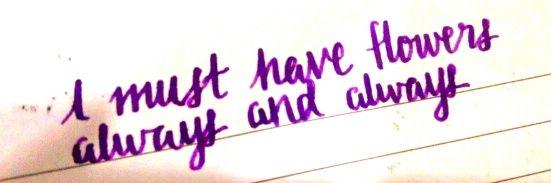 I must have flowers
always and always